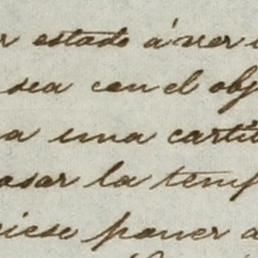 r estado á ver
sea con el obj
a una carti
asar la temp
iese poner a